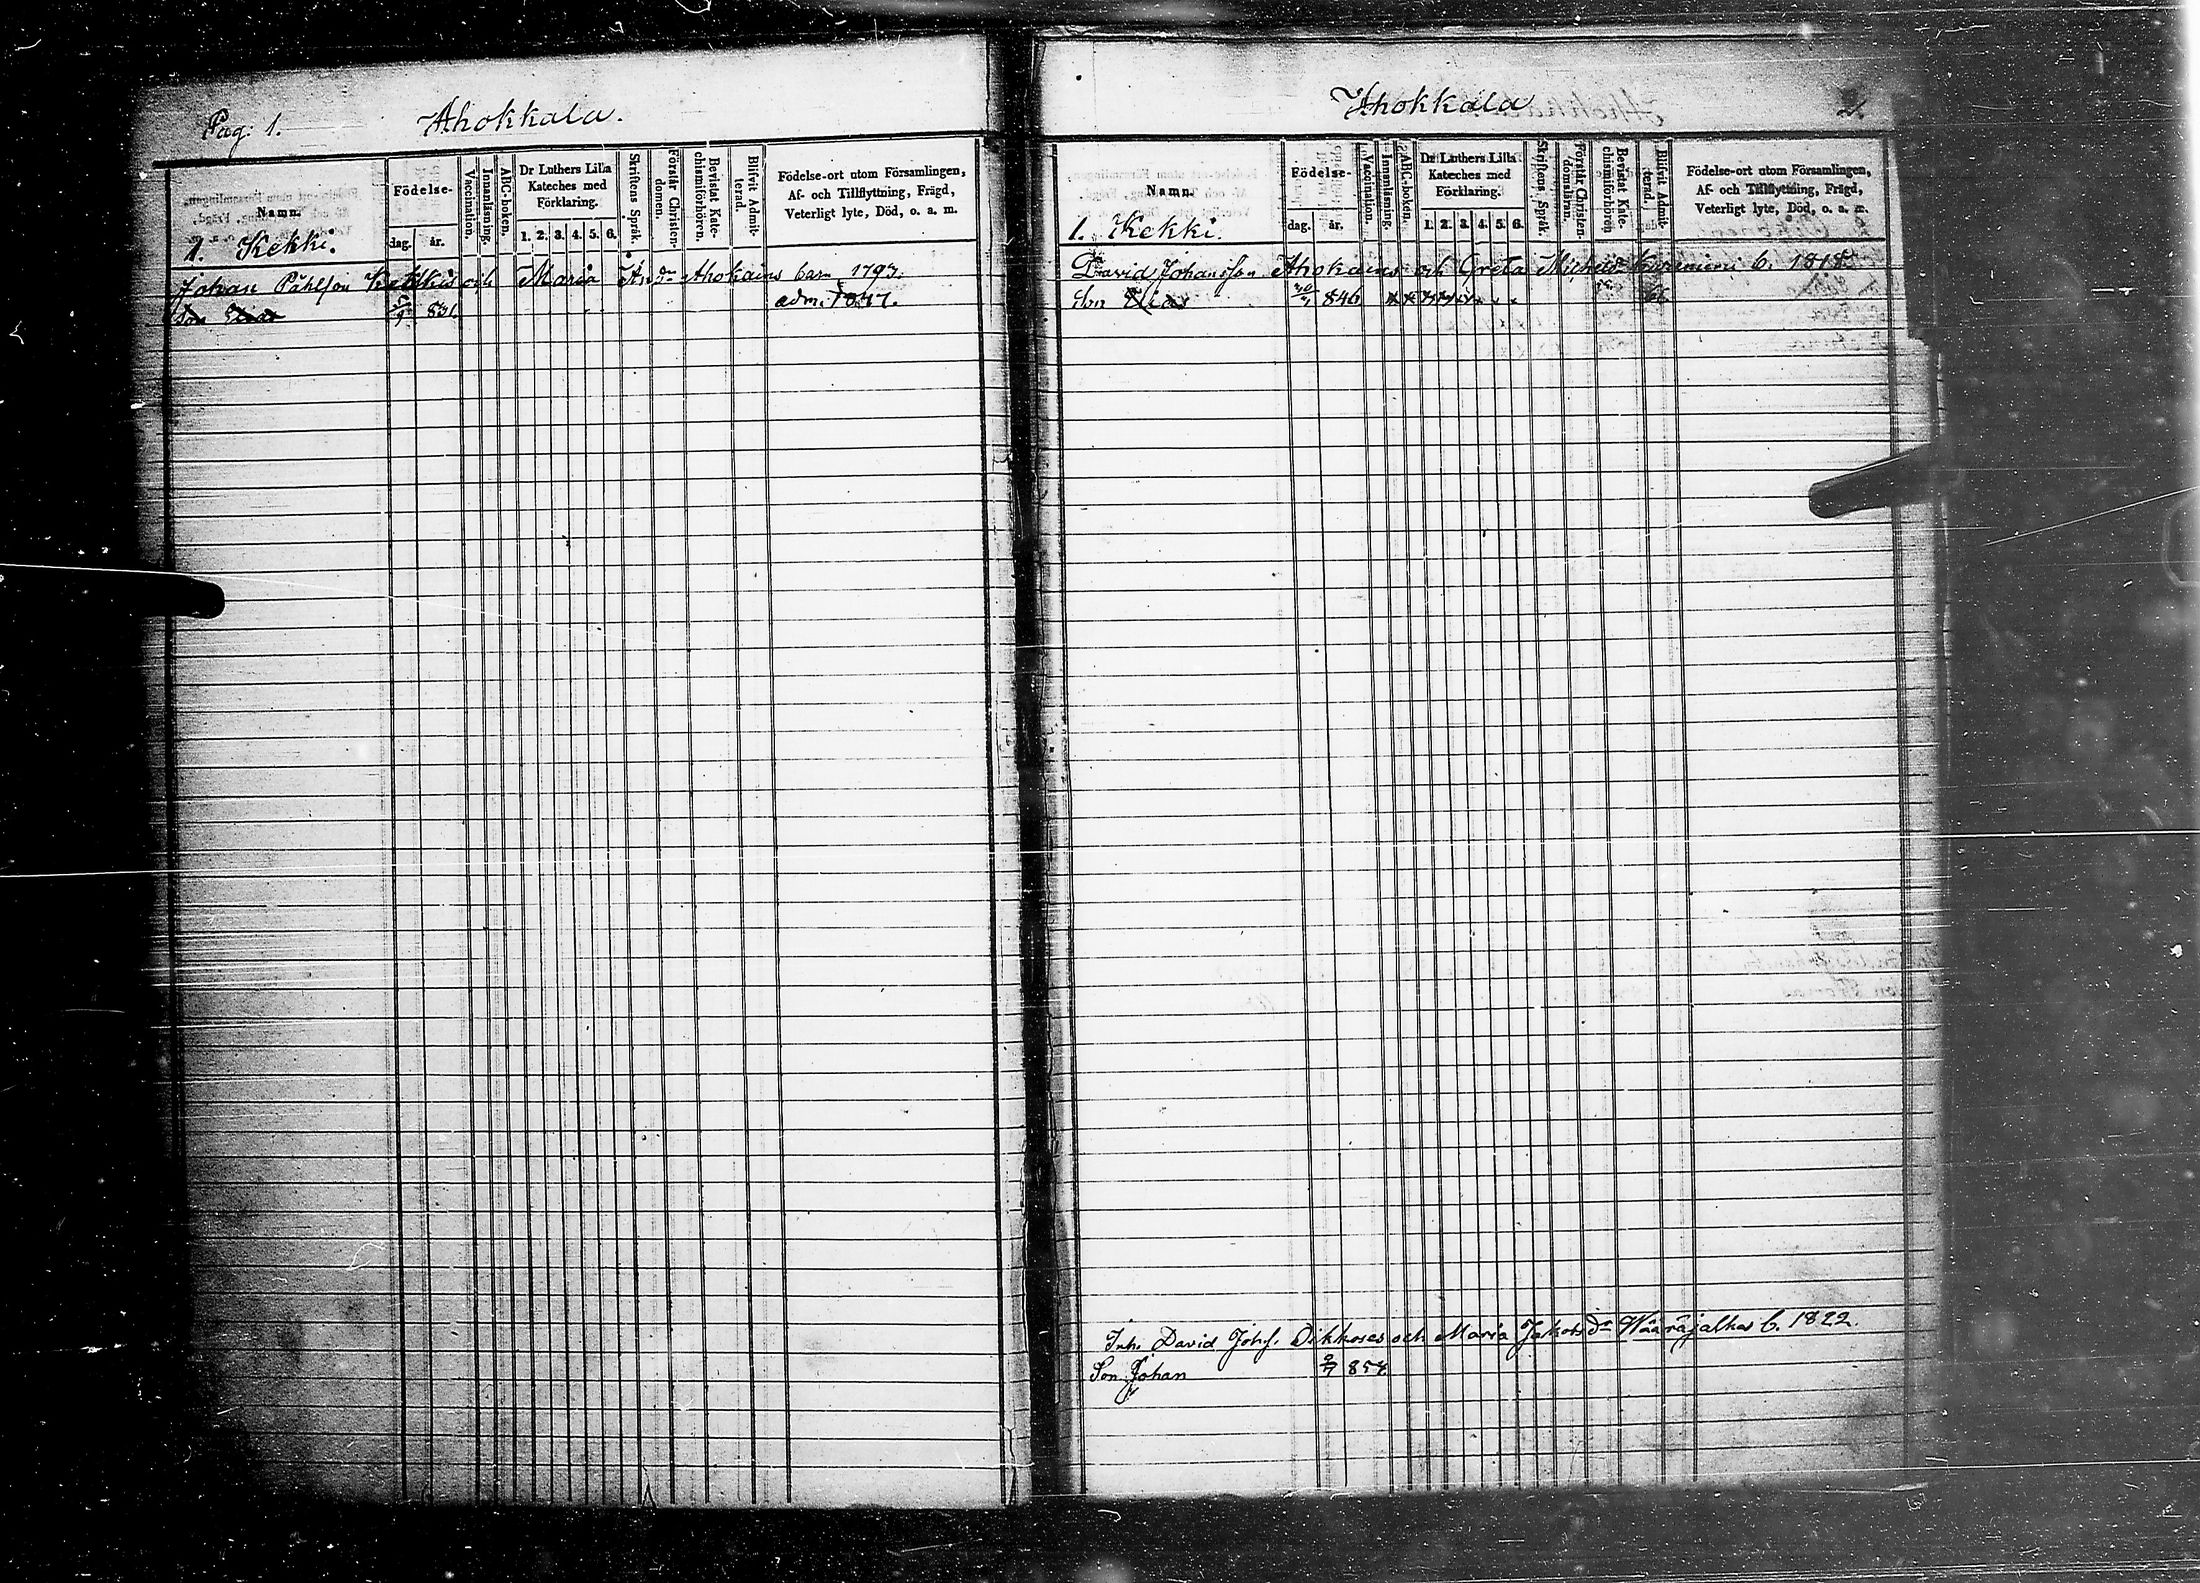 Pag: 1. Ahokkala.
Namn.
Födelse-
dag. år.
Vaccination.
Innanläsning.
ABC-boken.
Dr Luthers Lilla
Kateches med
Förklaring.
1. 2. 3. 4. 5. 6.
Skriftens Språk.
Förstår Christen-
domen.
Bevistat Kate-
chismiförhören.
Blifvit Admit-
terad.
Födelse-ort utom Församlingen,
Af- och Tillflyttning, Frägd,
Veterligt lyte, Död, o. a. m.
1. Kekki.
Johan Påhlsson och Maria And:dr Ahokains barn 1797.
Son 831 adm.
Ahokkala 2.
Namn.
Födelse-
dag. år.
Vaccination.
Innanläsning.
ABC-boken.
Dr Luthers Lilla
Kateches med
Förklaring.
1. 2. 3. 4. 5. 6.
Skriftens Språk.
Förstår Christen-
domsläran.
Bevistat Kate-
chismiförhören
Blifvit Admit-
terad.
Födelse-ort utom Församlingen,
Af- och Tillflyttning, Frägd,
Veterligt lyte, Död, o. a. m.
1. Kekki.
David Johansson Ahokains och Greta Michelsdr b. 1818
Son Elias 846
Inh. David Johs. Oikkoses och Maria Jakobsdr Wääräjalka b. 1822.
Son Johan 857